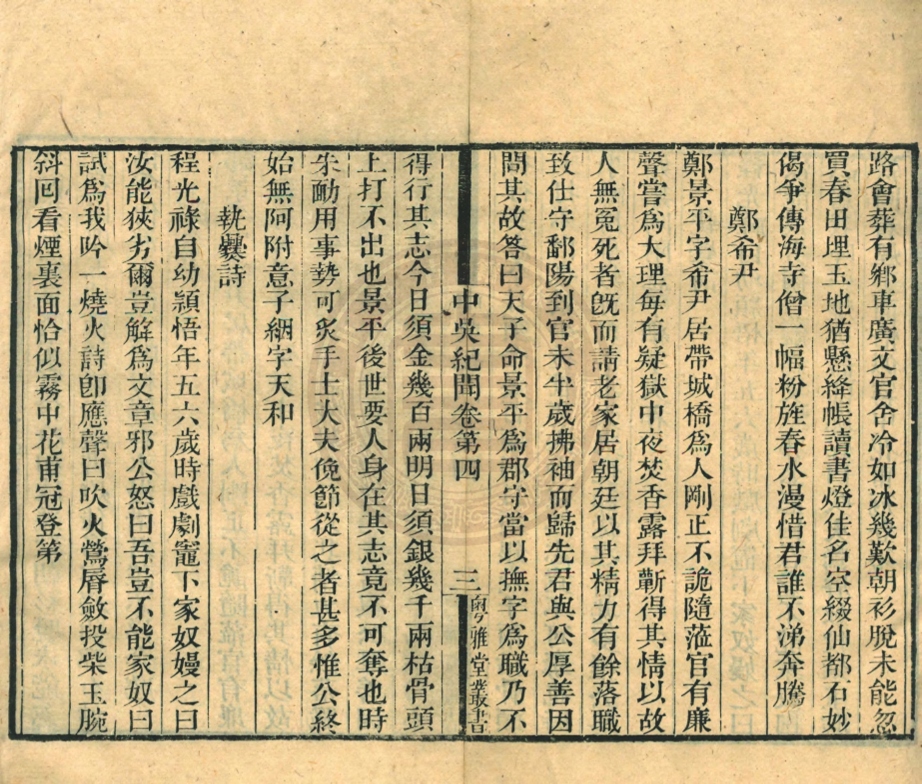 路會葬有鄉車廣文官舍冷如冰幾歎朝衫脫未能忽
買春田埋玉地猶懸絳帳讀書燈佳名空綴仙都石妙
偈爭傳海寺僧一幅粉旌春水漫惜君誰不涕奔騰
鄭希尹
鄭景平字希尹居帶城橋爲人剛正不詭隨蒞官有廉
聲嘗爲大理每有疑獄中夜焚香露拜蘄得其情以故
人無冤死者旣而請老家居朝廷以其精力有餘落職
致仕守鄱陽到官未半歲拂袖而歸先君與公厚善因
問其故答曰天子命景平爲郡守當以撫字爲職乃不
中吳紀聞卷第四
三
粵雅堂叢書
得行其志今日須金幾百兩明日須銀幾千兩枯骨頭
上打不出也景平後世要人身在其志竟不可奪也時
朱勔用事勢可炙手士大夫俛節從之者甚多惟公終
始無阿附意子絪字天和
執爨詩
程光祿自幼頴悟年五六歲時戲劇竈下家奴嫚之曰
汝能狹劣爾豈解爲文章邪公怒曰吾豈不能家奴曰
試爲我吟一燒火詩卽應聲曰吹火鶯脣斂投柴玉腕
斜回看煙裏面恰似霧中花甫冠登第